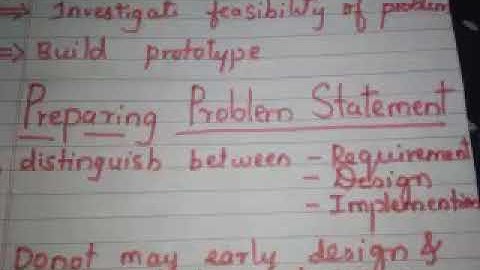 ⇒ Investigate feasibility of problem
⇒ Build prototype
Preparing Problem Statement
distinguish between - Requirement
- Design
- Implemention
Donot may early design &